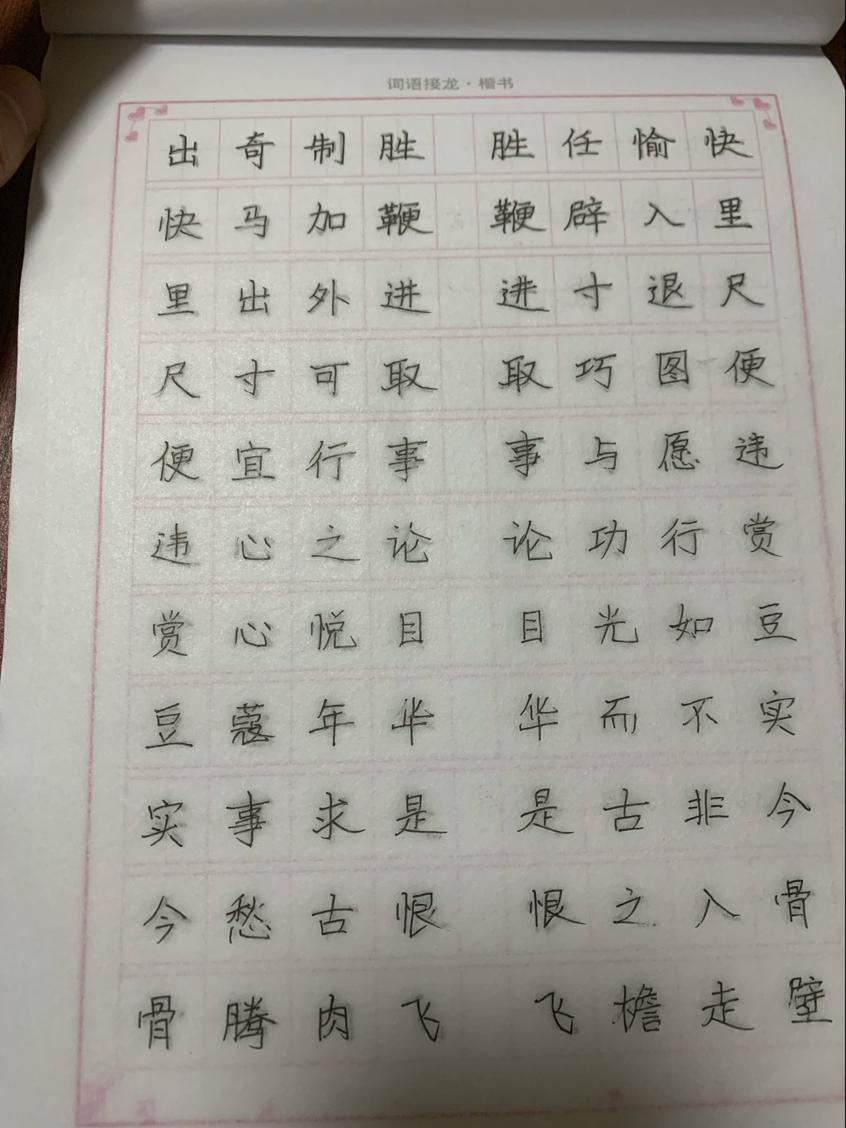 词语接龙·楷书
出奇制胜 胜任愉快
快马加鞭 鞭辟入里
里出外进 进寸退尺
尺寸可取 取巧图便
便宜行事 事与愿违
违心之论 论功行赏
赏心悦目 目光如豆
豆蔻年华 华而不实
实事求是 是古非今
今愁古恨 恨之入骨
骨腾肉飞 飞檐走壁